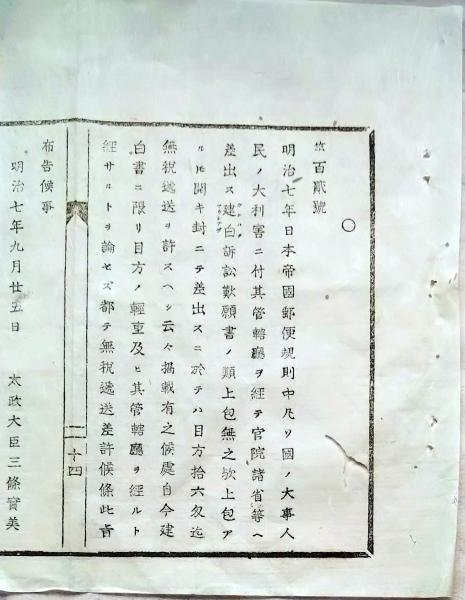 第百貳號
○
明治七年日本帝國郵便規則中凡ソ國ノ大事人
民ノ大利害ニ付其管轄廳ヲ經テ官院諸省等ヘ
差出ス建白訴訟歎願書ノ類上包無之欤上包ア
ルトモ開キ封ニテ差出スニ於テハ目方拾六匁迄
無税遞送ヲ許スヘシ云々揭載有之候處自今建
白書ニ限リ目方ノ輕重及ヒ其管轄廳ヲ經ルト
經サルトヲ論セズ都テ無税遞送差許候條此旨
二十四
布告候事
明治七年九月廿五日
太政大臣三條實美